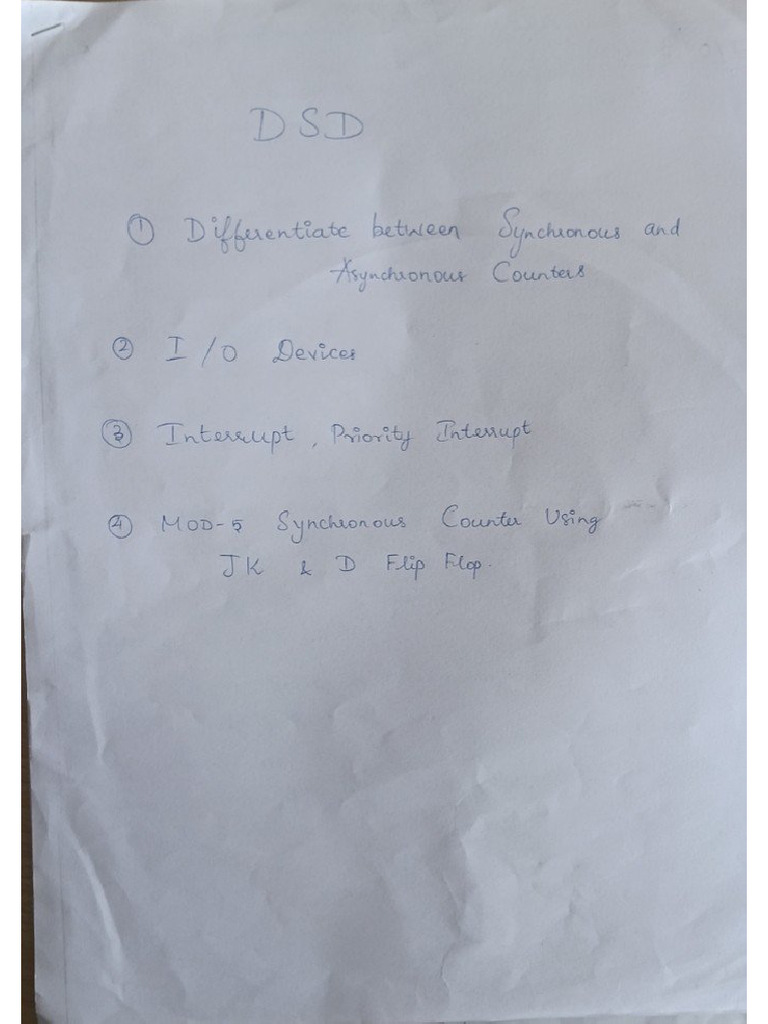 DSD
① Differentiate between Synchronous and
Asynchronous Counters
② I/O Devices
③ Interrupt, Priority Interrupt
④ MOD-5 Synchronous Counter Using
JK & D Flip Flop.